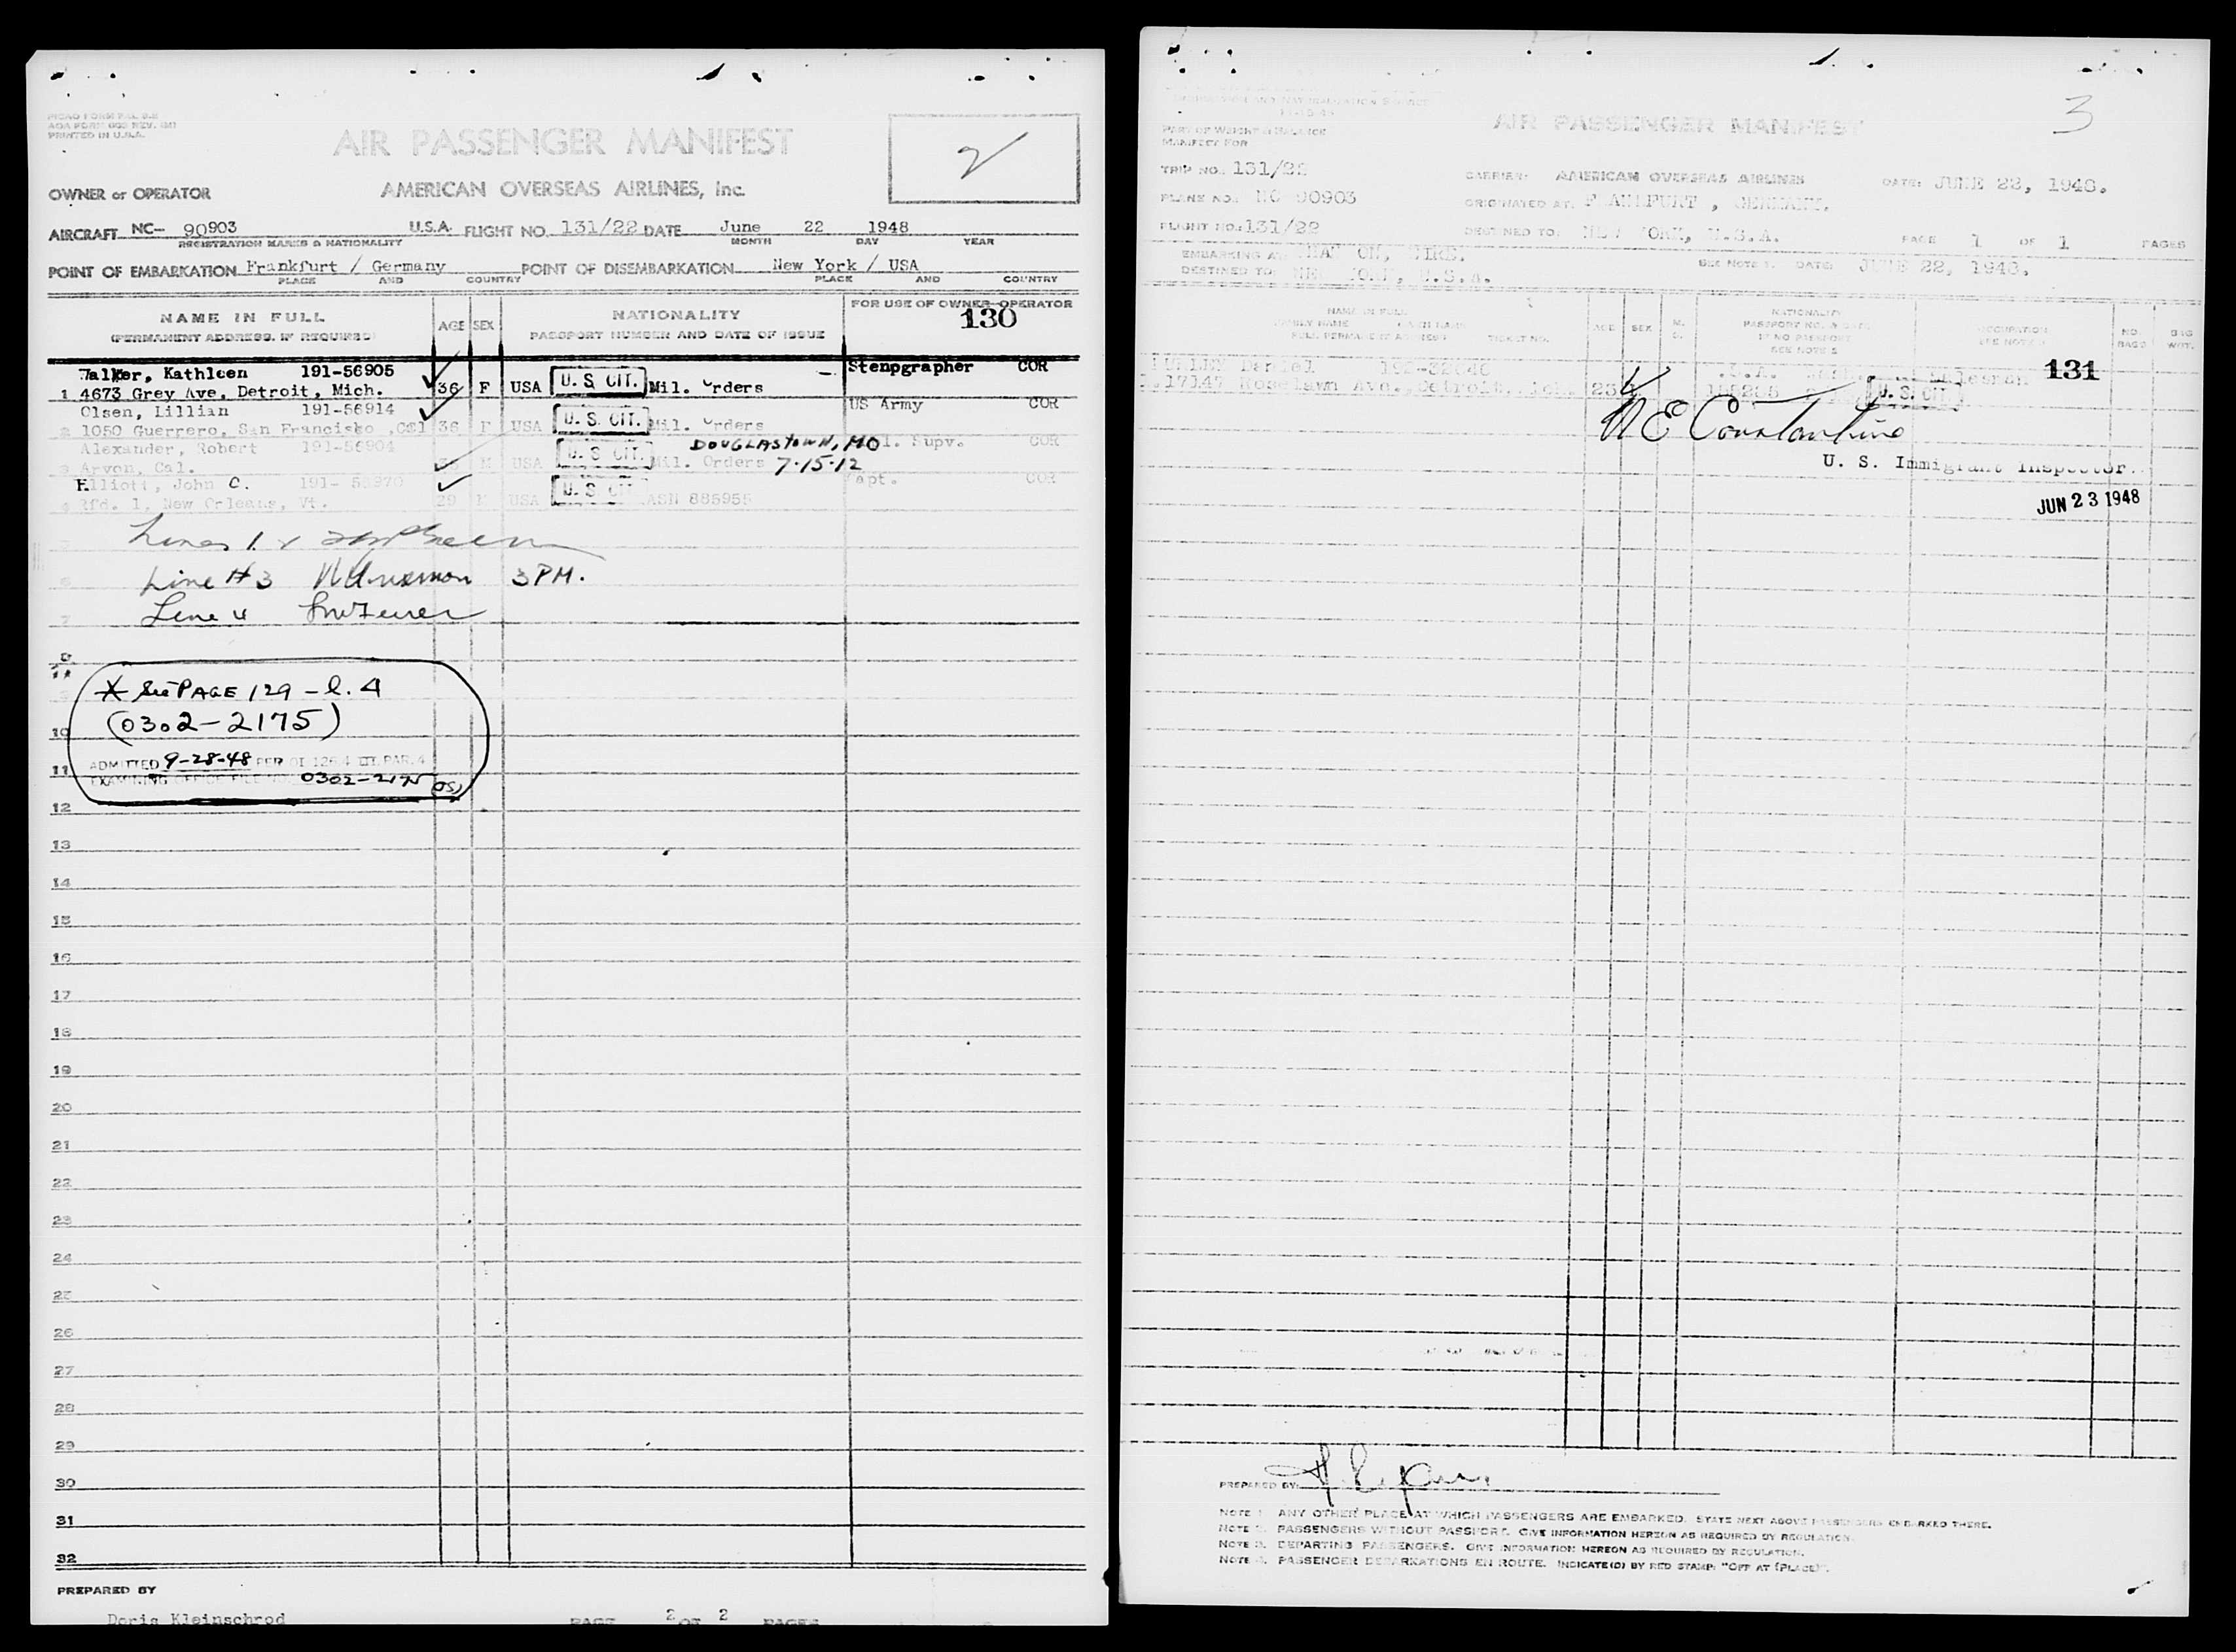 PICAO FORM PAL 2-2
AOA FORM
PRINTED IN U.S.A.
AIR PASSENGER MANIFEST
2
OWNER or OPERATOR AMERICAN OVERSEAS AIRLINES, Inc.
AIRCRAFT NC- 90903 U.S.A. FLIGHT NO. 131/22 DATE June 22 1948
REGISTRATION MARKS & NATIONALITY MONTH DAY YEAR
POINT OF EMBARKATION Frankfurt / Germany POINT OF DISEMBARKATION New York / USA
PLACE AND COUNTRY PLACE AND COUNTRY
NAME IN FULL
(PERMANENT ADDRESS, IF REQUIRED)
AGE SEX
NATIONALITY
PASSPORT NUMBER AND DATE OF ISSUE
FOR USE OF OWNER-OPERATOR
130
Walker, Kathleen 191-56905 Stenpgrapher COR
1 4673 Grey Ave, Detroit, Mich. 36 F USA U. S. CIT. Mil. Orders
Olsen, Lillian 191-56914 US Army COR
2 1050 Guerrero, San Francisko ,Cal 36 F USA U. S. CIT. Mil. Orders
Alexander, Robert 191-56904 DOUGLASTOWN, MO Supv. COR
3 Arvon, Cal. USA U. S. CIT. Mil. Orders 7-15-12
Elliott, John C. 191- Capt. COR
4 Rfd. 1, New Orleans, Vt. 29 M USA U. S. CIT. ASN 885955
Lines 1 &
Line #3 3 PM.
Line 4
* See PAGE 129 - l. 4
(0302-2175)
ADMITTED 9-28-48 PER OI 126.4 PAR. 4
EXAMINING OFFICE FILE NO. 0302-2175
5
6
7
8
9
10
11
12
13
14
15
16
17
18
19
20
21
22
23
24
25
26
27
28
29
30
31
32
PREPARED BY
Doris Kleinschrod PAGE 2 OF 2 PAGES
IMMIGRATION AND NATURALIZATION SERVICE
PART OF WEIGHT & BALANCE
MANIFEST FOR
AIR PASSENGER MANIFEST
3
TRIP NO. 131/22 CARRIER: AMERICAN OVERSEAS AIRLINES DATE: JUNE 22, 1948.
PLANE NO. NC 90903 ORIGINATED AT: FRANKFURT , GERMANY.
FLIGHT NO: 131/22 DESTINED TO: NEW YORK, U.S.A. PAGE 1 OF 1 PAGES
EMBARKING AT SHANNON, EIRE. SEE NOTE 1. DATE: JUNE 22, 1948.
DESTINED TO: NEW YORK, U.S.A.
NAME IN FULL
FAMILY NAME
FULL PERMANENT ADDRESS TICKET NO.
AGE SEX
NATIONALITY
PASSPORT NO. & DATE
IF NO PASSPORT
SEE NOTE 2
OCCUPATION
SEE NOTE 3
NO. BAGS
BAG WGT.
Daniel 192-32046 Salesman 131
17147 Roselawn Ave., Detroit, 23 U. S. CIT.
N E Constantine
U. S. Immigrant Inspector.
JUN 23 1948
PREPARED BY:
NOTE 1. ANY OTHER PLACE AT WHICH PASSENGERS ARE EMBARKED. STATE NEXT ABOVE PASSENGERS EMBARKED THERE.
NOTE 2. PASSENGERS WITHOUT PASSPORT. GIVE INFORMATION HEREON AS REQUIRED BY REGULATION.
NOTE 3. DEPARTING PASSENGERS. GIVE INFORMATION HEREON AS REQUIRED BY REGULATION.
NOTE 4. PASSENGER DEBARKATIONS EN ROUTE. INDICATE(D) BY RED STAMP: "OFF AT (PLACE)".